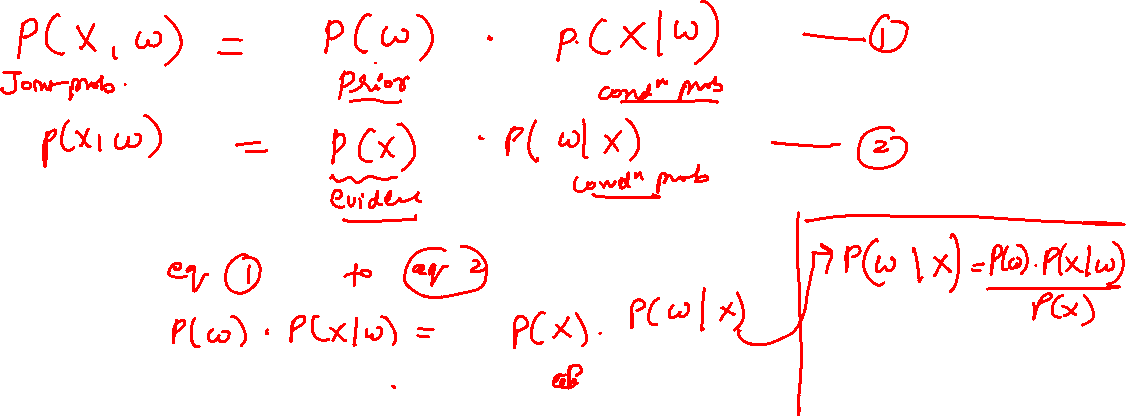 P(X, ω) = P(ω) · P(X|ω) — ①
Joint prob. prior condⁿ prob
P(X, ω) = P(X) · P(ω|X) — ②
evidence condⁿ prob
eq ① to eq 2
P(ω) · P(X|ω) = P(X) · P(ω|X)
→ P(ω|X) = P(ω) · P(X|ω)
P(X)